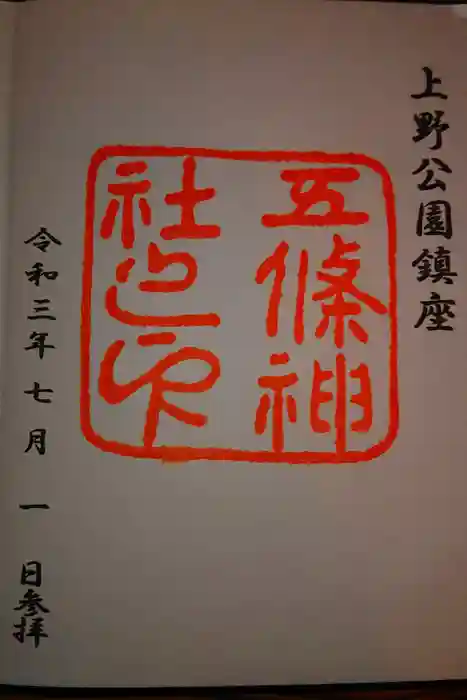 上野公園鎮座
五條神
社之印
令和三年七月一日参拝